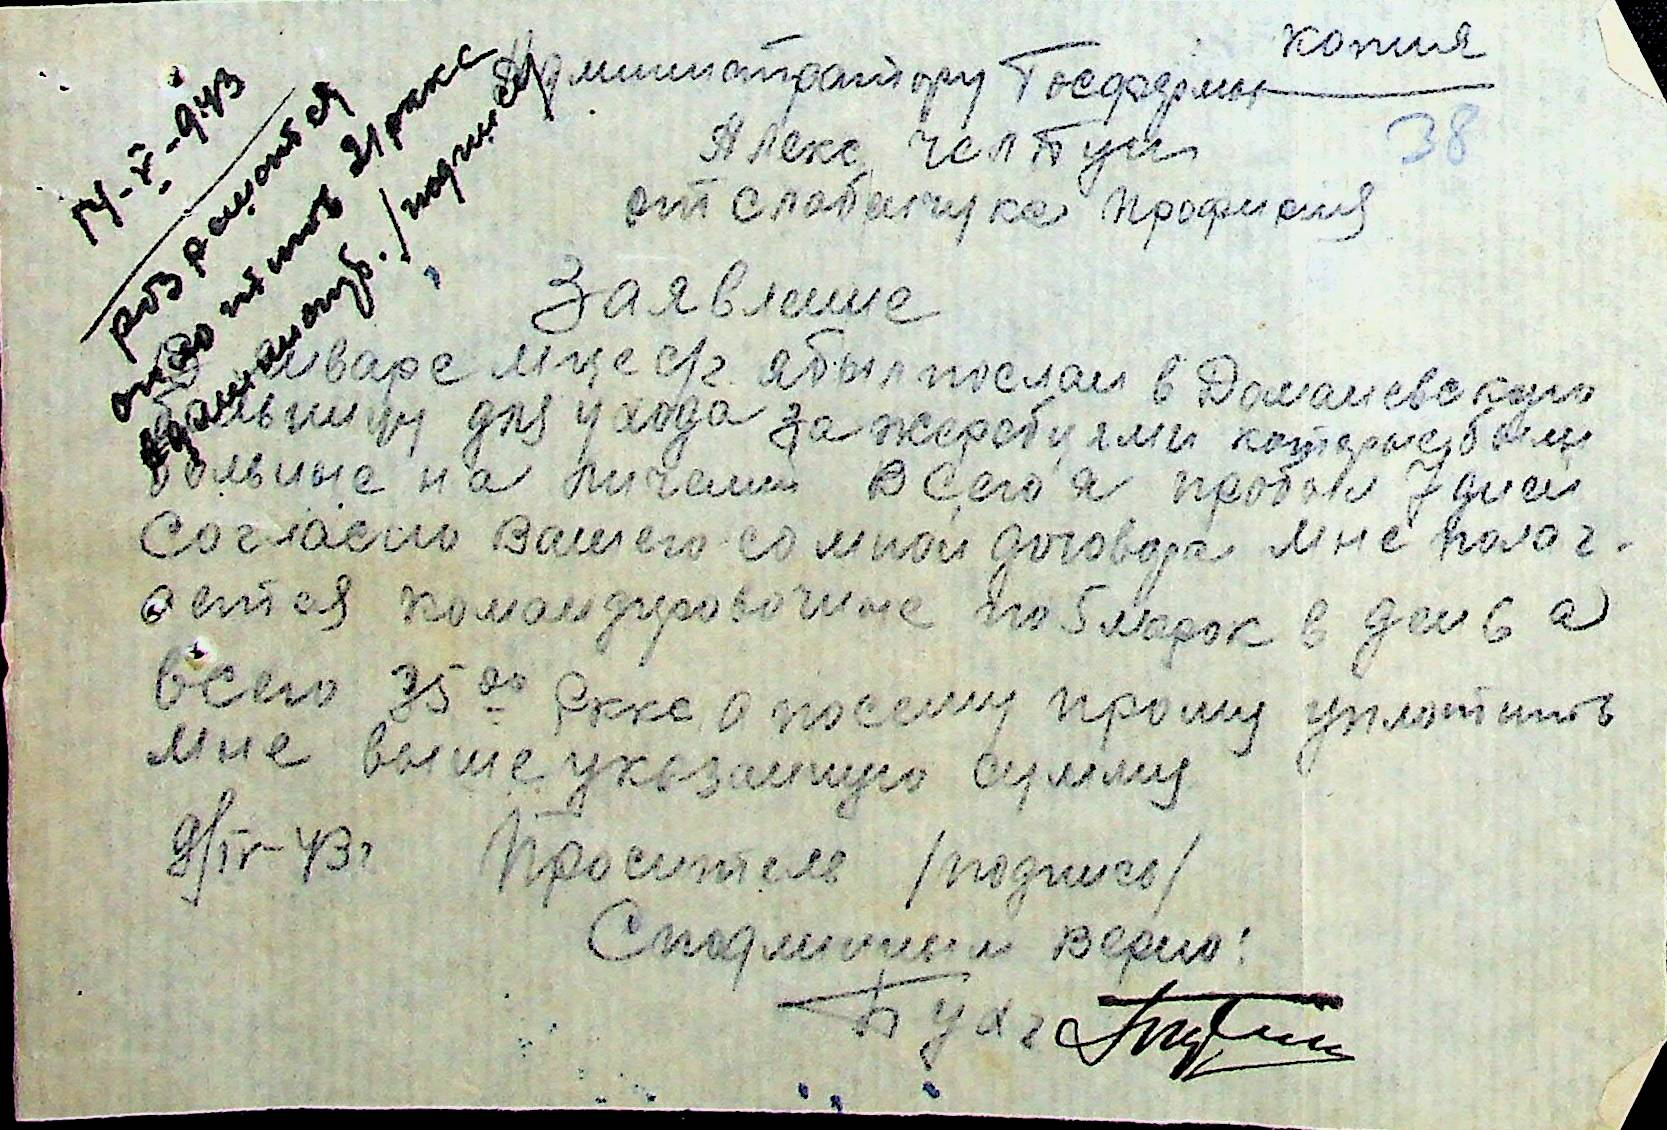 копия
Администратору Госфермы
38
Алекс Челтуш
от Слободянчука Профирия
14-V-943
розрешается
оплотить 21 ркке
Администр. /подпись/
Заявление
В январе м-це с/г. я был послан в Доманевскую
больницу для ухода за жеребцями которые были
больные на личении Всего я пробыл 7 дней
Согласно Вашего со мной договора мне полог-
ается командировочные по 5 марок в день а
всего 35 оо ркке, а посему прошу уплотить
мне выше указанную сумму
9/IV-43г Проситель /подпись/
С подлинным верно:
Бухг